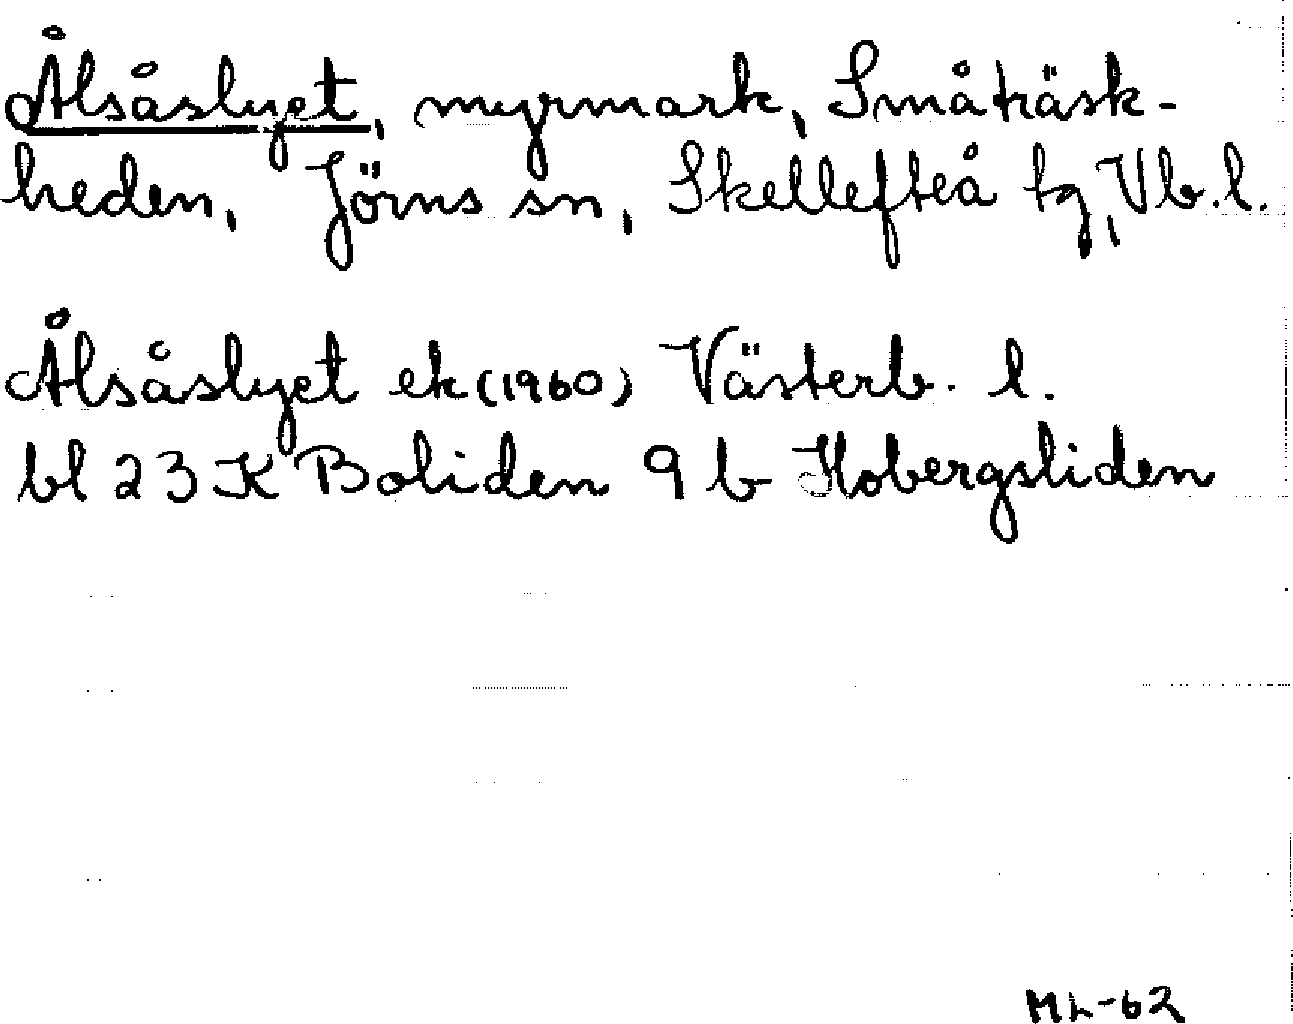 Ålsåslyet, myrmark, Småträsk-
heden, Jörns sn, Skellefteå tg, Vb.l.
Ålsåslyet ek (1960) Västerb. l.
bl 23 K Boliden 9 b Hobergsliden
ML-62